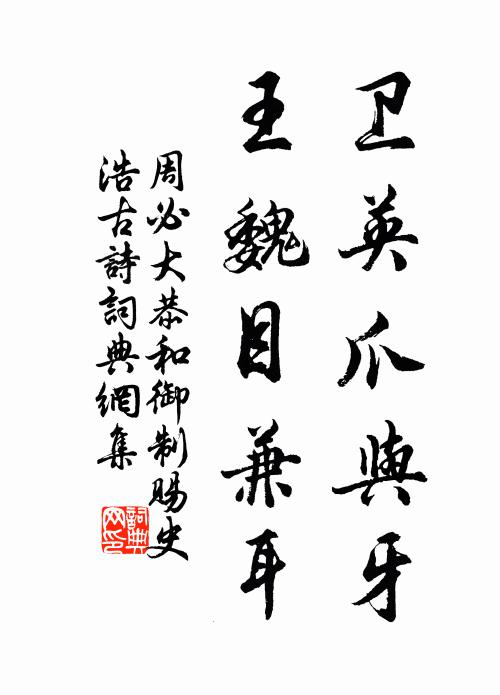 卫英爪與牙
王魏目兼耳
周必大恭和御制賜史
浩古詩詞典網集
詞典
网印